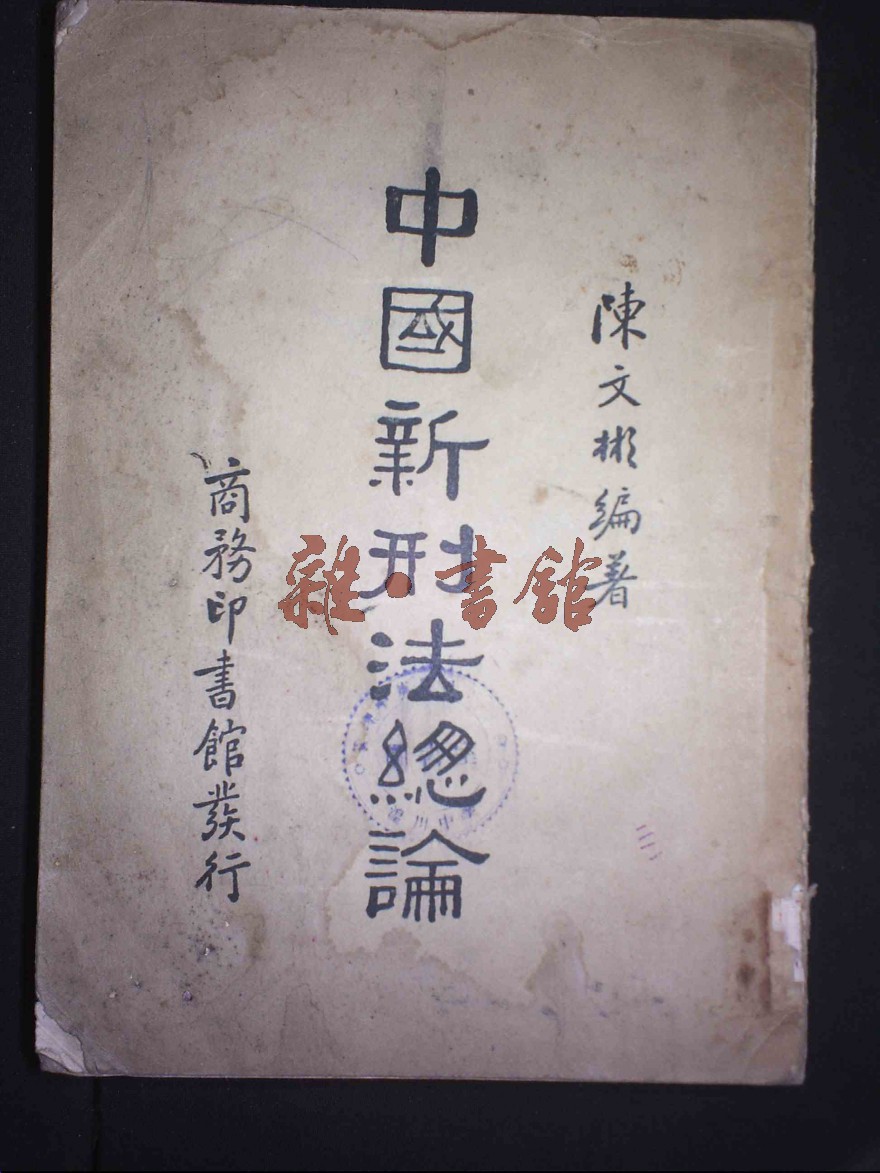 陳文彬編著
中國新刑法總論
商務印書館發行
雜·書館